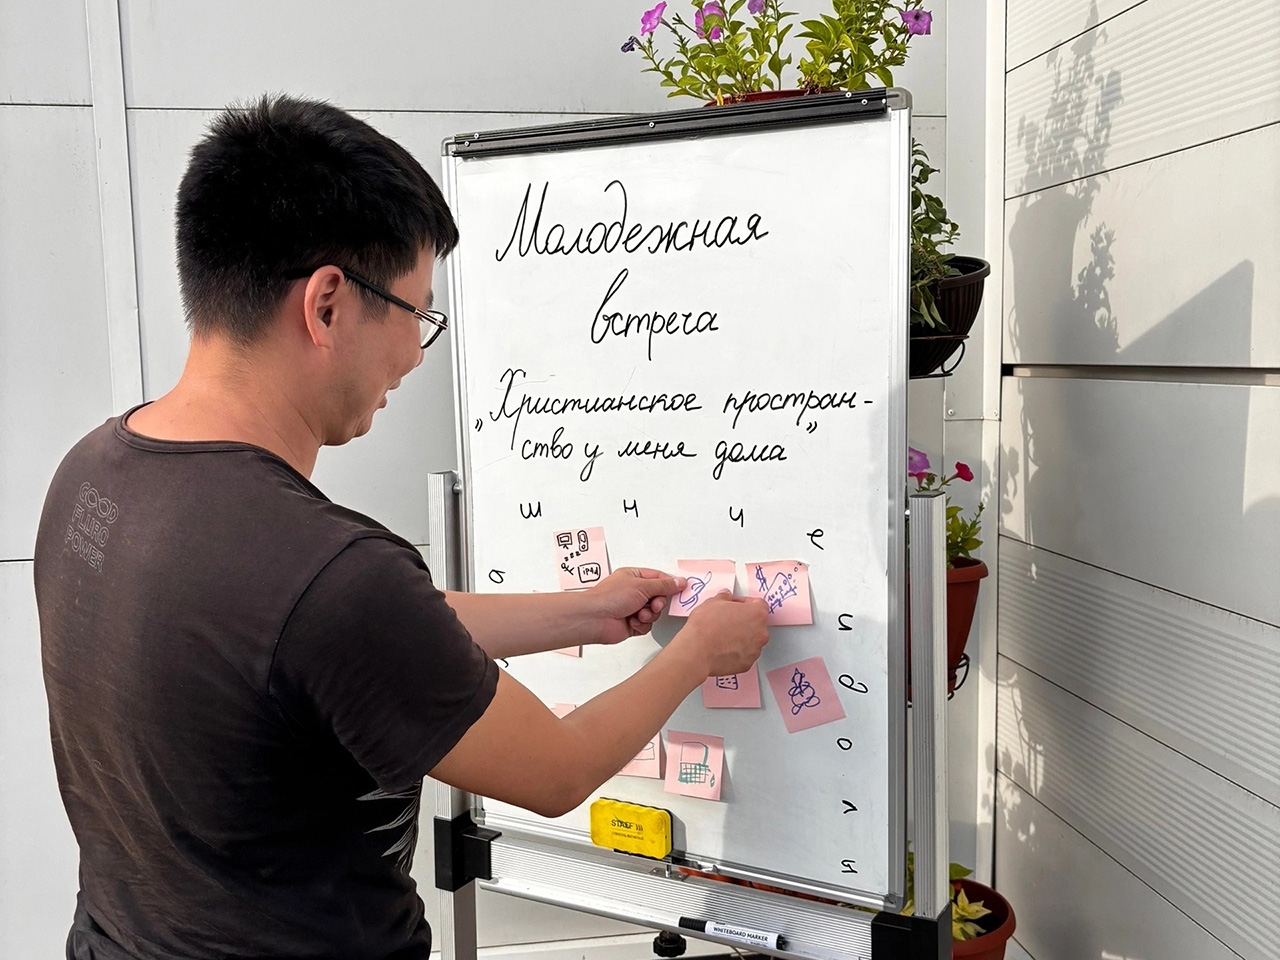 Молодежная
встреча
„Христианское простран-
ство у меня дома”
ш н ч е
а
й
д
о
л
я
iPad
GOOD
FLURO
POWER
STAFF
WHITEBOARD MARKER